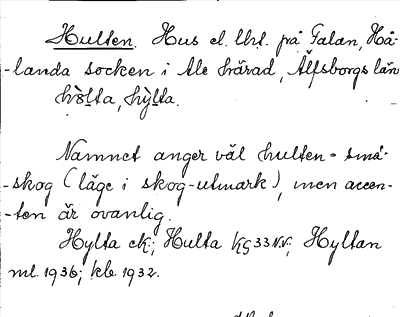 Hulten. Hus el. lht. på Galan, Hå-
-landa socken i Ale härad, Älfsborgs län
hòlta, hỳlta.
Namnet anger väl hulten = små-
-skog (läge i skog-utmark), men accen-
-ten är ovanlig.
Hylta ek; Hulta KG 33 NV; Hyltan
ml. 1936; kb. 1932.